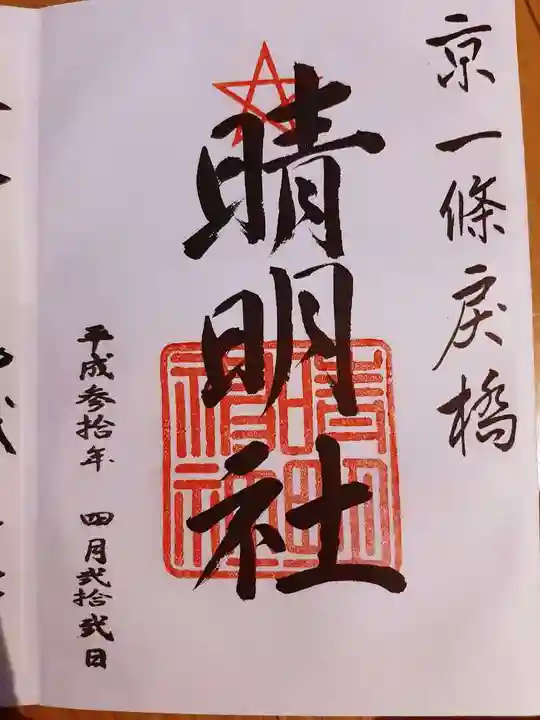 京一條戻橋
晴明社
晴明神社
平成参拾年 四月弐拾弐日